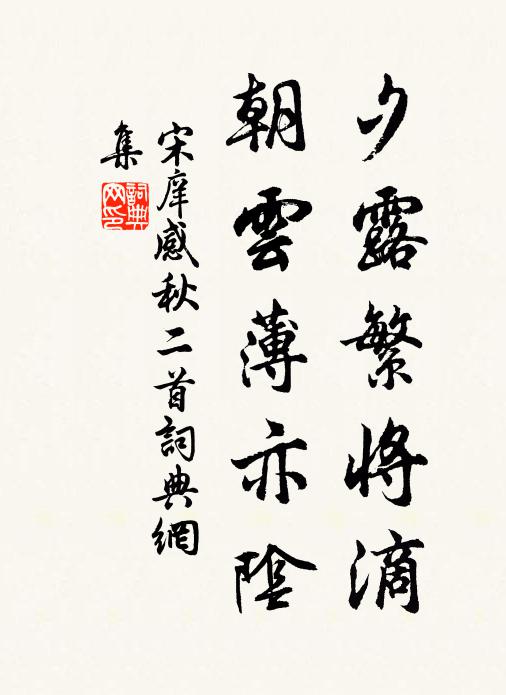 夕露繁將滴
朝雲薄亦陰
宋庠感秋二首詞典網
集
詞典
网印